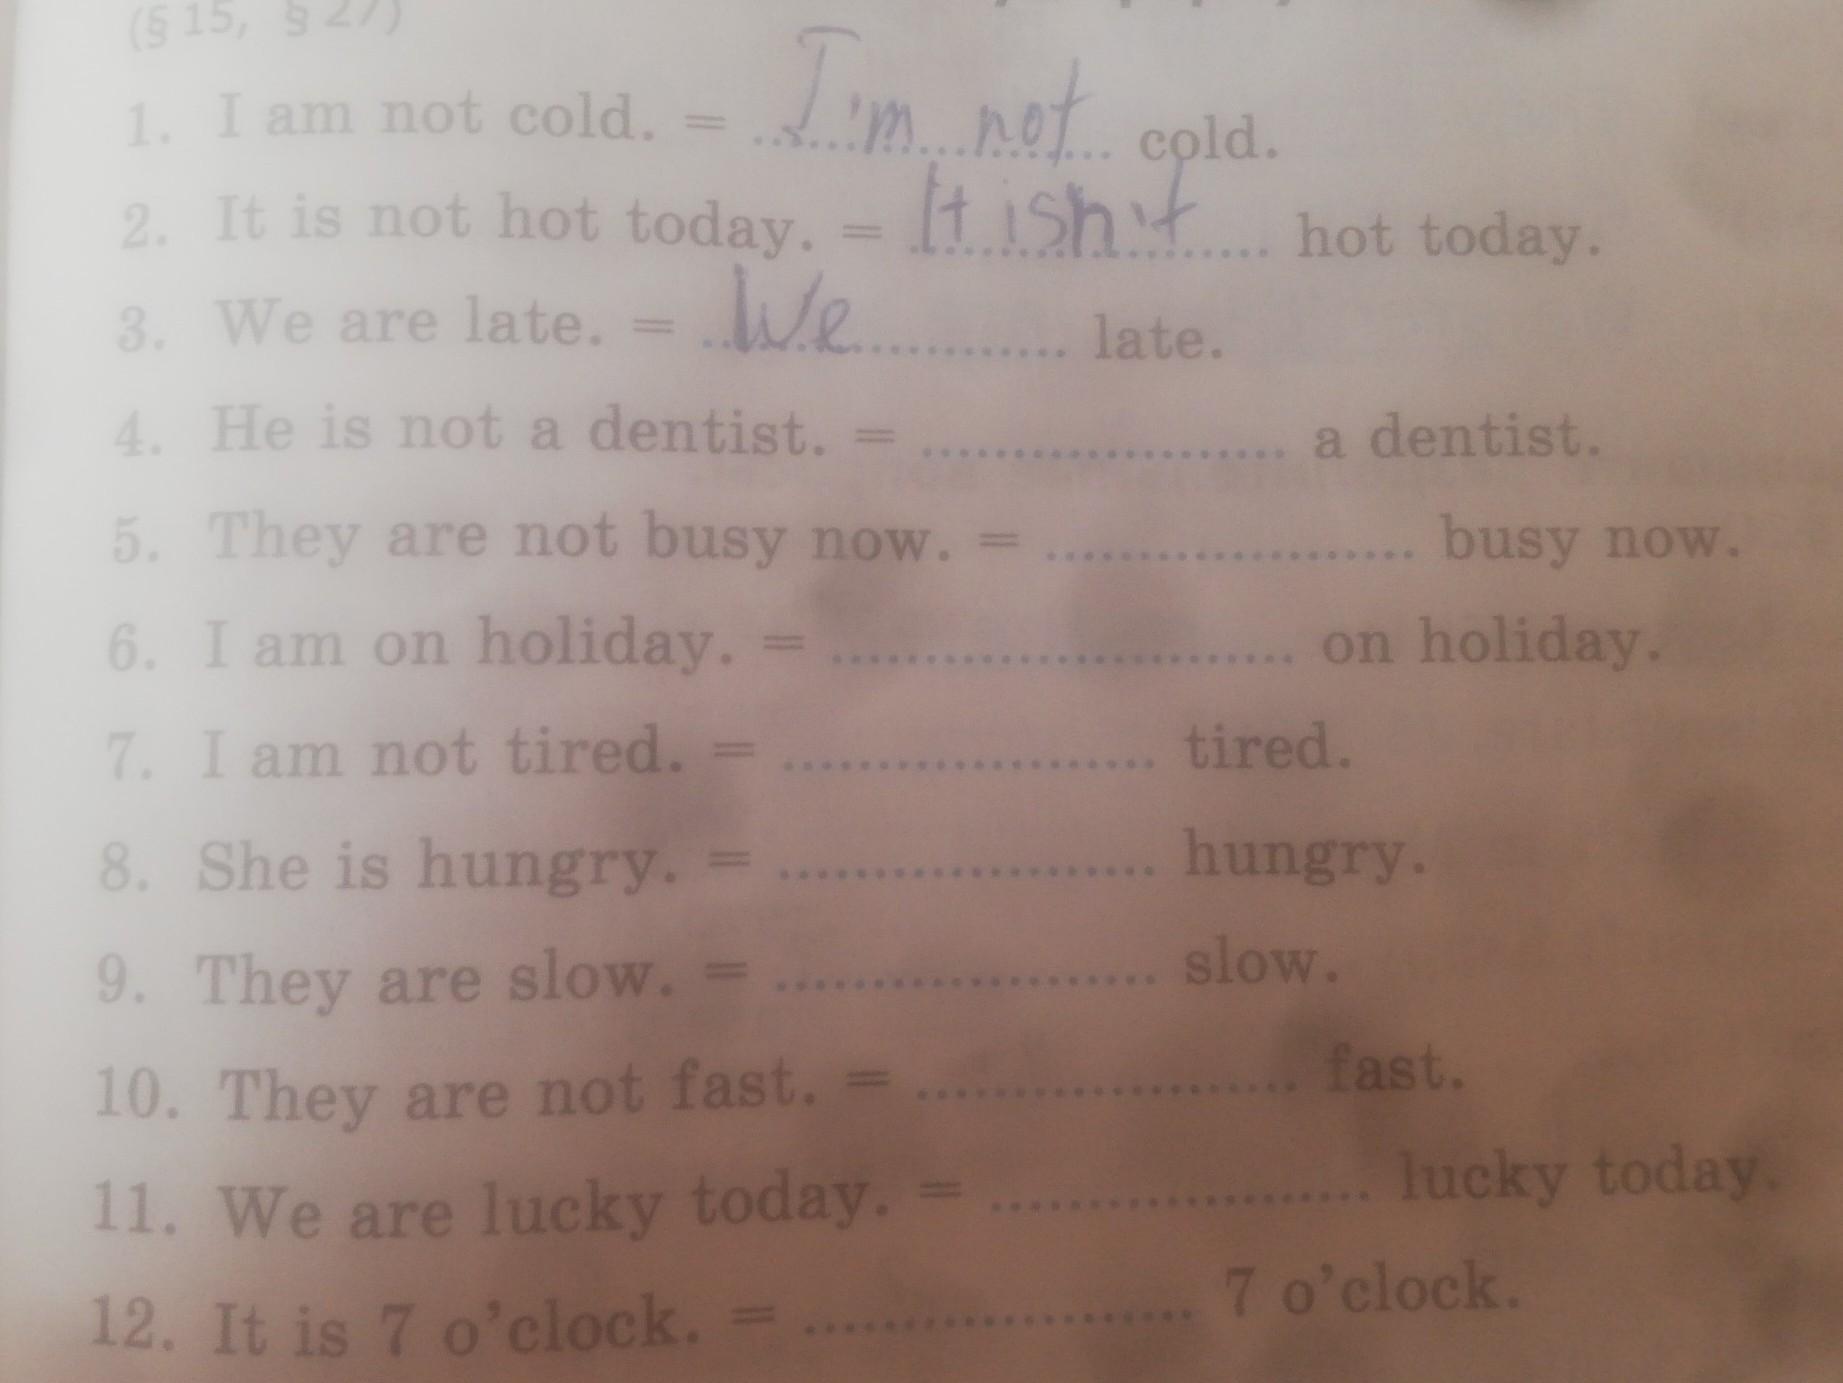 (§ 15, § 27)
1. I am not cold. = I'm not cold.
2. It is not hot today. = It isn't hot today.
3. We are late. = We .............. late.
4. He is not a dentist. = .................... a dentist.
5. They are not busy now. = .................... busy now.
6. I am on holiday. = ......................... on holiday.
7. I am not tired. = .................... tired.
8. She is hungry. = .................... hungry.
9. They are slow. = .................... slow.
10. They are not fast. = .................... fast.
11. We are lucky today. = .................... lucky today.
12. It is 7 o'clock. = .................... 7 o'clock.